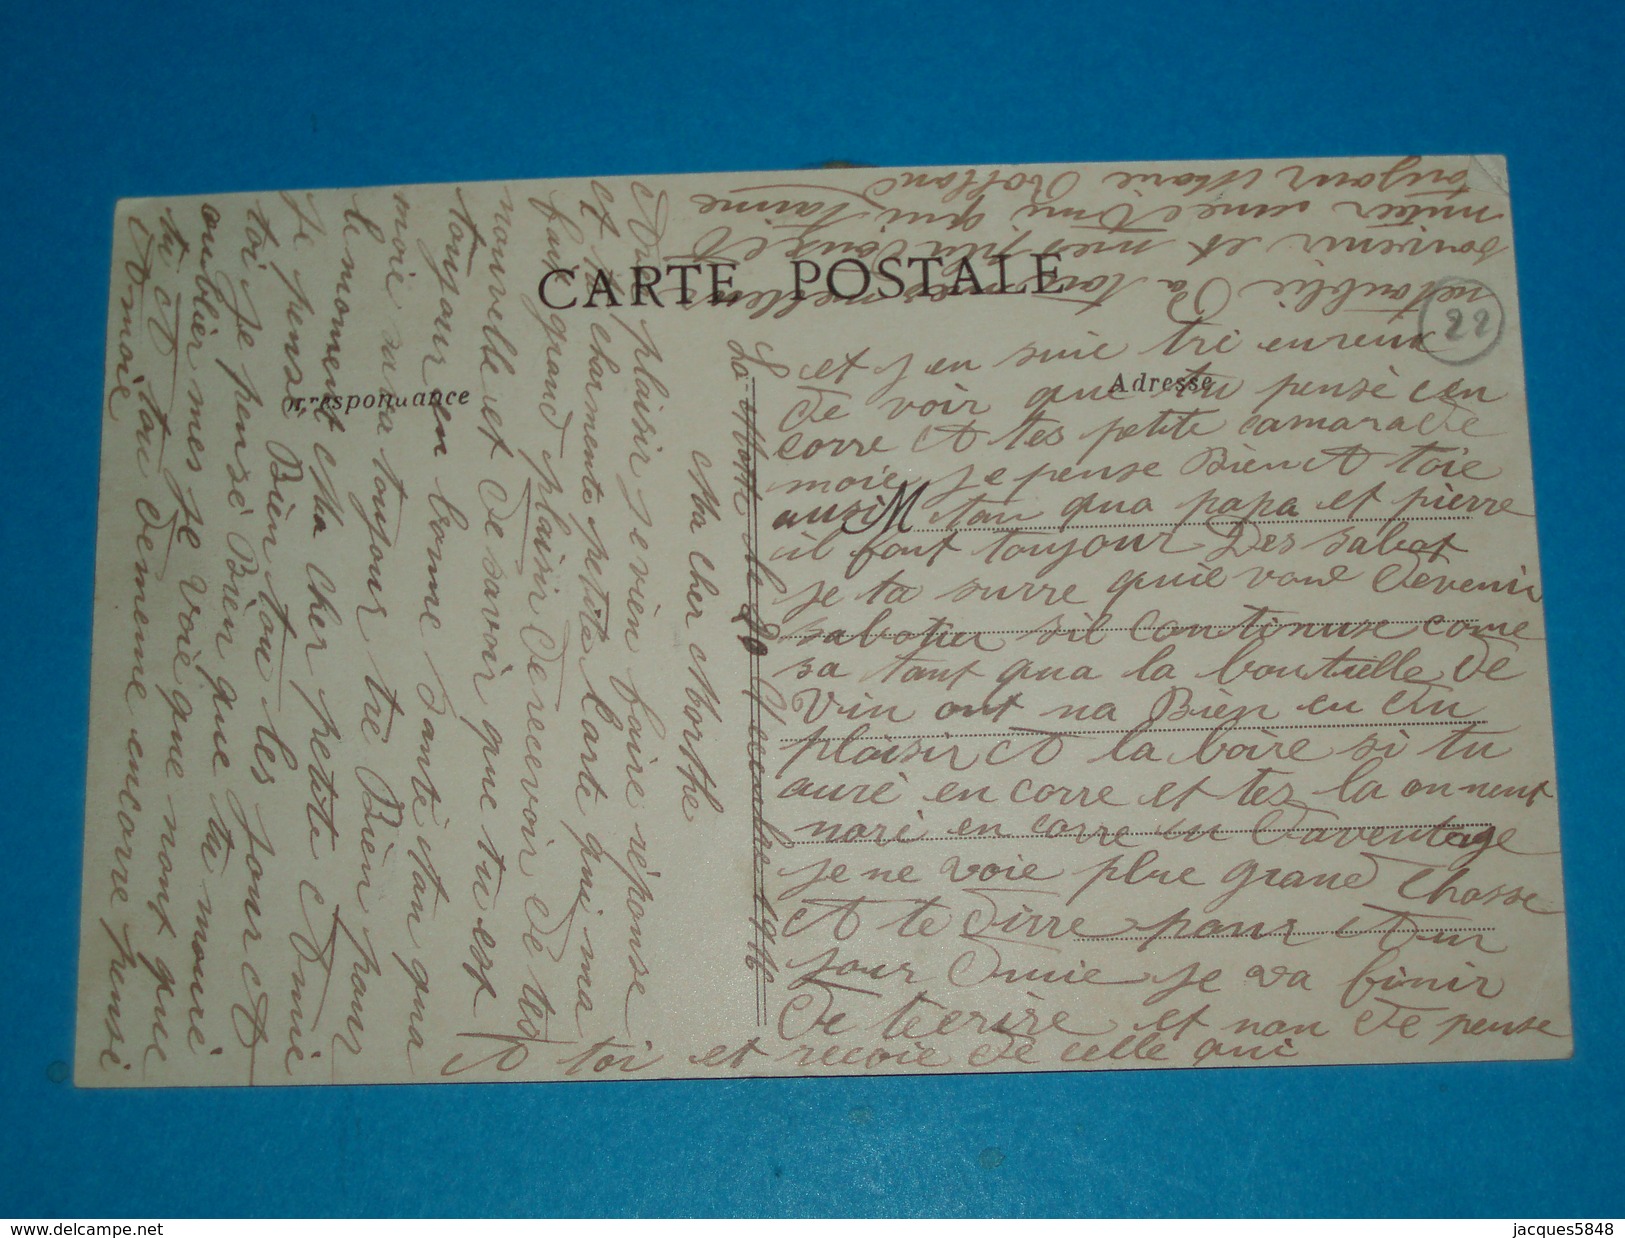 CARTE POSTALE
Correspondance
Adresse
22
La Motte le 20 1916
Ma cher Marthe
plaisir je vien faire réponse
et ta charmente petite carte qui ma
fait grand plaisir de recevoir de tes
nouvelle et de savoir que tu est
toujour en bonne santé tan qua
moie sa va toujour tré Bien pour
le moment Ma cher petite Amie
je pense Bien tou les jour A
toi je pensé Bien que tu mouré
oublier mes je voie que nont que
tu A tou de meme encorre pensé
A moie
et j en suie tré eureux
de voir que tu pensé en
corre A tes petite camarade
moie je pense Bien A toie
ausi M tan qua papa et pierre
il font toujour Des sabot
je ta surre quie vont devenir
sabotier sil continuse come
sa tant qua la boutielle de
Vin ont na Bien eu du
plaisir A la boire si tu
auré en corre et tes la on nent
noré en corre eu Daventage
je ne voie plue grand chosse
A te dirre pour
jour Amie je va finir
De tecrire et non De pense
A toi et recoie de celle qui
netoublie Pa ton
souvenir et mes
une Amie qui taime
toujour Marie Rolland
jacques5848
www.delcampe.net